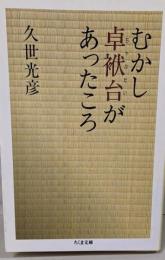 むかし
卓袱台が
あったころ
久世光彦
ちくま文庫